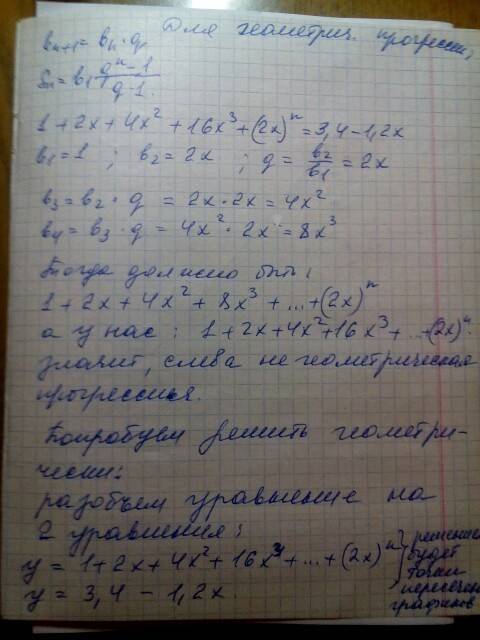 Для геометрич. прогрессии,
bₙ₊₁ = bₙ · q
Sₙ = b₁ (qⁿ - 1)/(q - 1)
1 + 2x + 4x² + 16x³ + (2x)ⁿ = 3,4 - 1,2x
b₁ = 1 ; b₂ = 2x ; q = b₂/b₁ = 2x
b₃ = b₂ · q = 2x · 2x = 4x²
b₄ = b₃ · q = 4x² · 2x = 8x³
Тогда должно быть:
1 + 2x + 4x² + 8x³ + ... + (2x)ⁿ
а у нас: 1 + 2x + 4x² + 16x³ + ... (2x)ⁿ.
значит, слева не геометрическая
прогрессия.
Попробуем решить геометри-
чески:
разобъем уравнение на
2 уравнения:
y = 1 + 2x + 4x² + 16x³ + ... + (2x)ⁿ
y = 3,4 - 1,2x.
} решение
будет
точки
пересечен
графиков